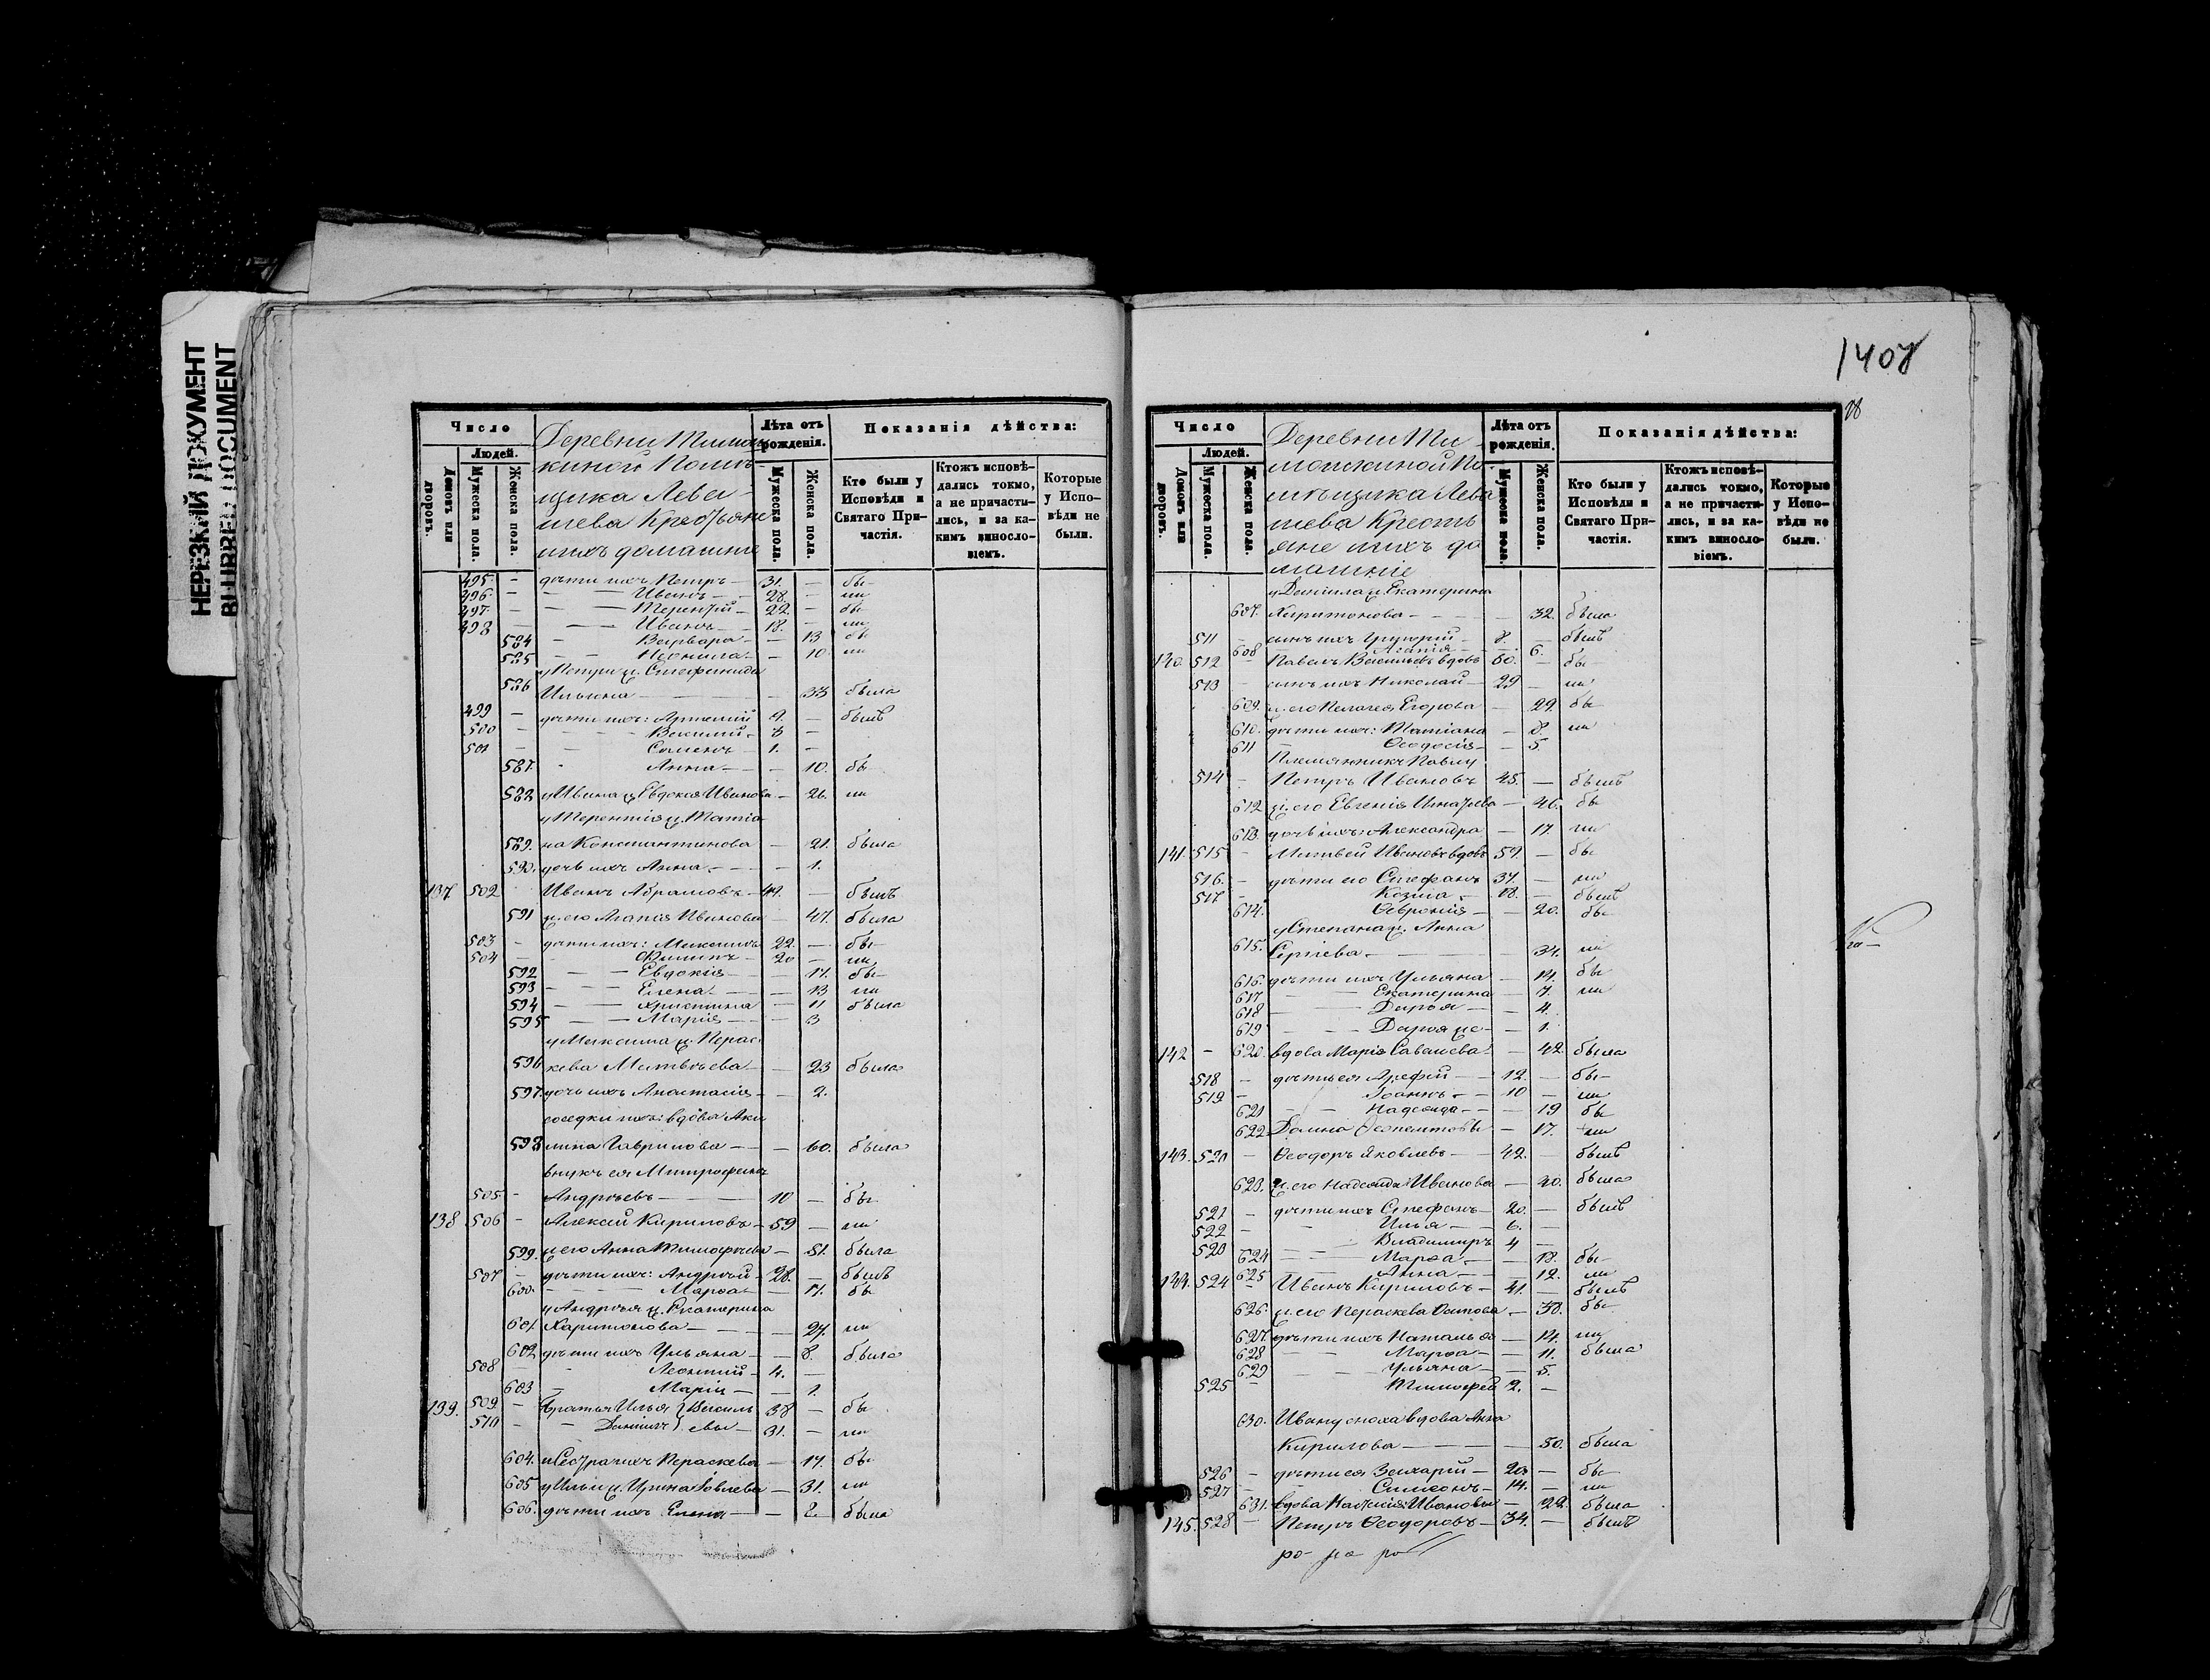 НЕРЕЗКИЙ ДОКУМЕНТ
BLURRED DOCUMENT
Число
Людей.
Домовъ или дворовъ.
Мужеска пола.
Женска пола.
Деревни Тимош
киной Помѣ-
щика Лева-
шева Крестьяне
и ихъ домашніе
Лѣта отъ рожденія.
Мужеска пола.
Женска пола.
Показанія дѣйства:
Кто были у Исповѣди и Святаго Причастія.
Ктожъ исповѣдались токмо, а не причастились, и за какимъ винословіемъ.
Которые у Исповѣди не были.
495 - дѣти ихъ Петръ - 31. - бы-
496 - - - Иванъ - 28. - ли
497 - - - Терентій - 22. - бы-
498 - - - Иванъ - 18. - ли
584 - - Варвара - - 13 бы
585 - - Неонила - - 10 ли
у Петра ж. Стефанида
586 Ильина - - 33 была
499 - дѣти ихъ: Артемій 9. - былъ
500 - - - - Василий - 3 -
501 - - Семенъ - 1. -
587. Анна - - - 10. бы
588 у Ивана ж Евдокія Иванова - 26. ли
у Терентія ж. Татіа
589. на Константинова - 21. была
590. дочь ихъ Анна - - - 1.
137. 502 Иванъ Абрамовъ - 49. - былъ
591 ж. его Агапія Иванова - 47. была
503 - дѣти ихъ: Максимъ 22. - бы-
504 - Филипъ - 20 - ли
592 - - Евдокія - - 17. бы-
593 - - Елена - - 13 ли
594 - - Христина - 11 была
595 - - Марія - - 3
у Максима ж. Перас
596 кева Матвѣева - - 23 была
597. дочь ихъ Анастасія - - 2.
соседки ихъ: вдова Аки
598 лина Гаврилова - - - 60. была
внукъ ея Митрофанъ
505 - Андрѣевъ - - 10 - бы
138 506 - Алексѣй Кириловъ - 59 - ли
599. ж его Анна Тимофѣева - 51. была
507 - дѣти ихъ: Андрѣй - 28. - былъ
600. - - - Марѳа - - 17. бы
у Андрѣя ж. Екатерина
601. Харитонова - - - 27. ли
602 дѣти ихъ Ульяна - - 8. была
508 - Леонтий - 4. -
603 - Марія - - 1.
139. 509 - братья Илья } Василь 38 - бы
510 - - Даниилъ } евы - 31. - ли
604. и Сестра ихъ Параскева - 17. бы
605 у Ильи ж. Ирина Іовлева - 31. ли
606. дѣти ихъ Елена - - 8. была
1408
Число
Людей.
Домовъ или дворовъ.
Мужеска пола.
Женска пола.
Деревни Ти-
мошкиной По
мѣщика Лева
шева Кресть
яне и ихъ до
машніе
Лѣта отъ рожденія.
Мужеска пола.
Женска пола.
Показанія дѣйства:
Кто были у Исповѣди и Святаго Причастія.
Ктожъ исповѣдались токмо, а не причастились, и за какимъ винословіемъ.
Которые у Исповѣди не были.
у Даниила ж. Екатерина
607. Харитонова - - - - 32. была
511 - сынъ ихъ Григорій - 8. - былъ
608 Агапія - - 6.
140. 512 - Павелъ Васильевъ вдовъ 60. - бы
513 - сынъ ихъ Николай - 29 - ли
609. ж. его Пелагея Егорова - 29. бы
610. дѣти ихъ: Татіана - 8. ли
611 - Ѳеодосія - - 5.
Племянникъ Павлу
514 - Петръ Ивановъ 45. - былъ
612 ж. его Евгенія Игнатьева - 46. бы
613. дочь ихъ Александра - 17. ли
141. 515 - Матвей Ивановъ вдовъ 59. - бы
516. - дѣти его Стефанъ 37. - ли
517 - Козма - 18. - былъ
614. Ѳевронія - - 20. бы
у Степана ж. Анна
615. Сергіева - - - 34. ли
616. дѣти ихъ Ульяна - 14. бы
617 - - Екатерина - 7. ли
618 - Дарья - - 4.
619 - - Дарья же - - 1.
142 - 620. вдова Марія Савельева - 42. была
518 - дѣти ея Арефій - - 12. - бы-
519 - Іоаннъ - - 10 - ли
621 - - Надежда - - - 19 бы
622 - 17. ли
143. 520 - Ѳеодоръ Яковлевъ - - 42. - былъ
623. ж. его Надежда Иванова - 40. была
521 - дѣти ихъ Стефанъ - 20. - былъ
522 - - Илья - - 6. -
523 - Владимиръ 4 -
624 - - Марѳа - - 18. бы
625 - - Анна - - 12. ли
144. 524 - Иванъ Кириловъ - 41. - былъ
626. ж. его Параскева Осипова - 38. бы
627. дѣти ихъ Наталья - 14. ли
628 - - Марѳа - - 11. была
629 - - - Ульяна - - 5.
525 - Тимофей 2. -
630. Ивану сноха вдова Анна
Кирилова - - - 50. была
526 - дѣти ея Захарій - 20. - бы-
527 - Симеонъ - 14. - ли
631. вдова Наталія Иванова - 22. была
145. 528 - Петръ Ѳеодоровъ - 34. - былъ